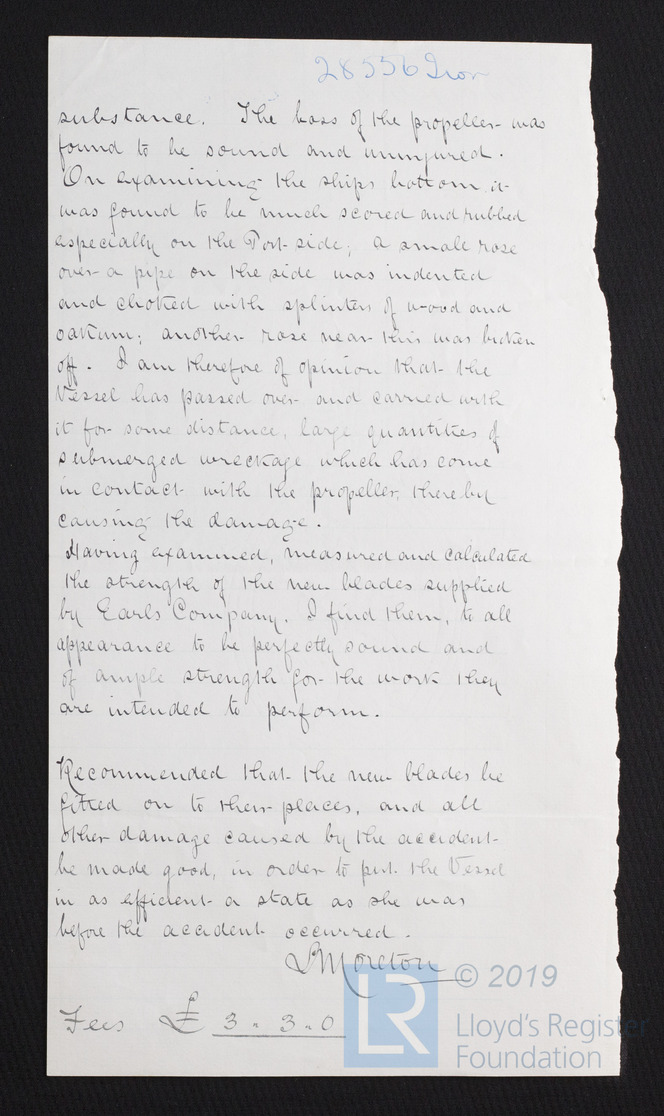 28556 Iron
substance. The boss of the propeller was
found to be sound and uninjured.
On examining the ships bottom, it
was found to be much scored and rubbed
especially on the Port side; a small rose
over a pipe on the side was indented
and choked with splinters of wood and
oakum; another rose near this was broken
off. I am therefore of opinion that the
Vessel has passed over and carried with
it for some distance, large quantities of
submerged wreckage which has come
in contact with the propeller, thereby
causing the damage.
Having examined, measured and calculated
the strength of the new blades supplied
by Earls Company. I find them, to all
appearance to be perfectly sound and
of ample strength for the work they
are intended to perform.
Recommended that the new blades be
fitted on to their places, and all
other damage caused by the accident
be made good, in order to put the Vessel
in as efficient a state as she was
before the accident occurred.
Moreton
Fees £ 3 " 3 " 0
LR
© 2019
Lloyd's Register
Foundation